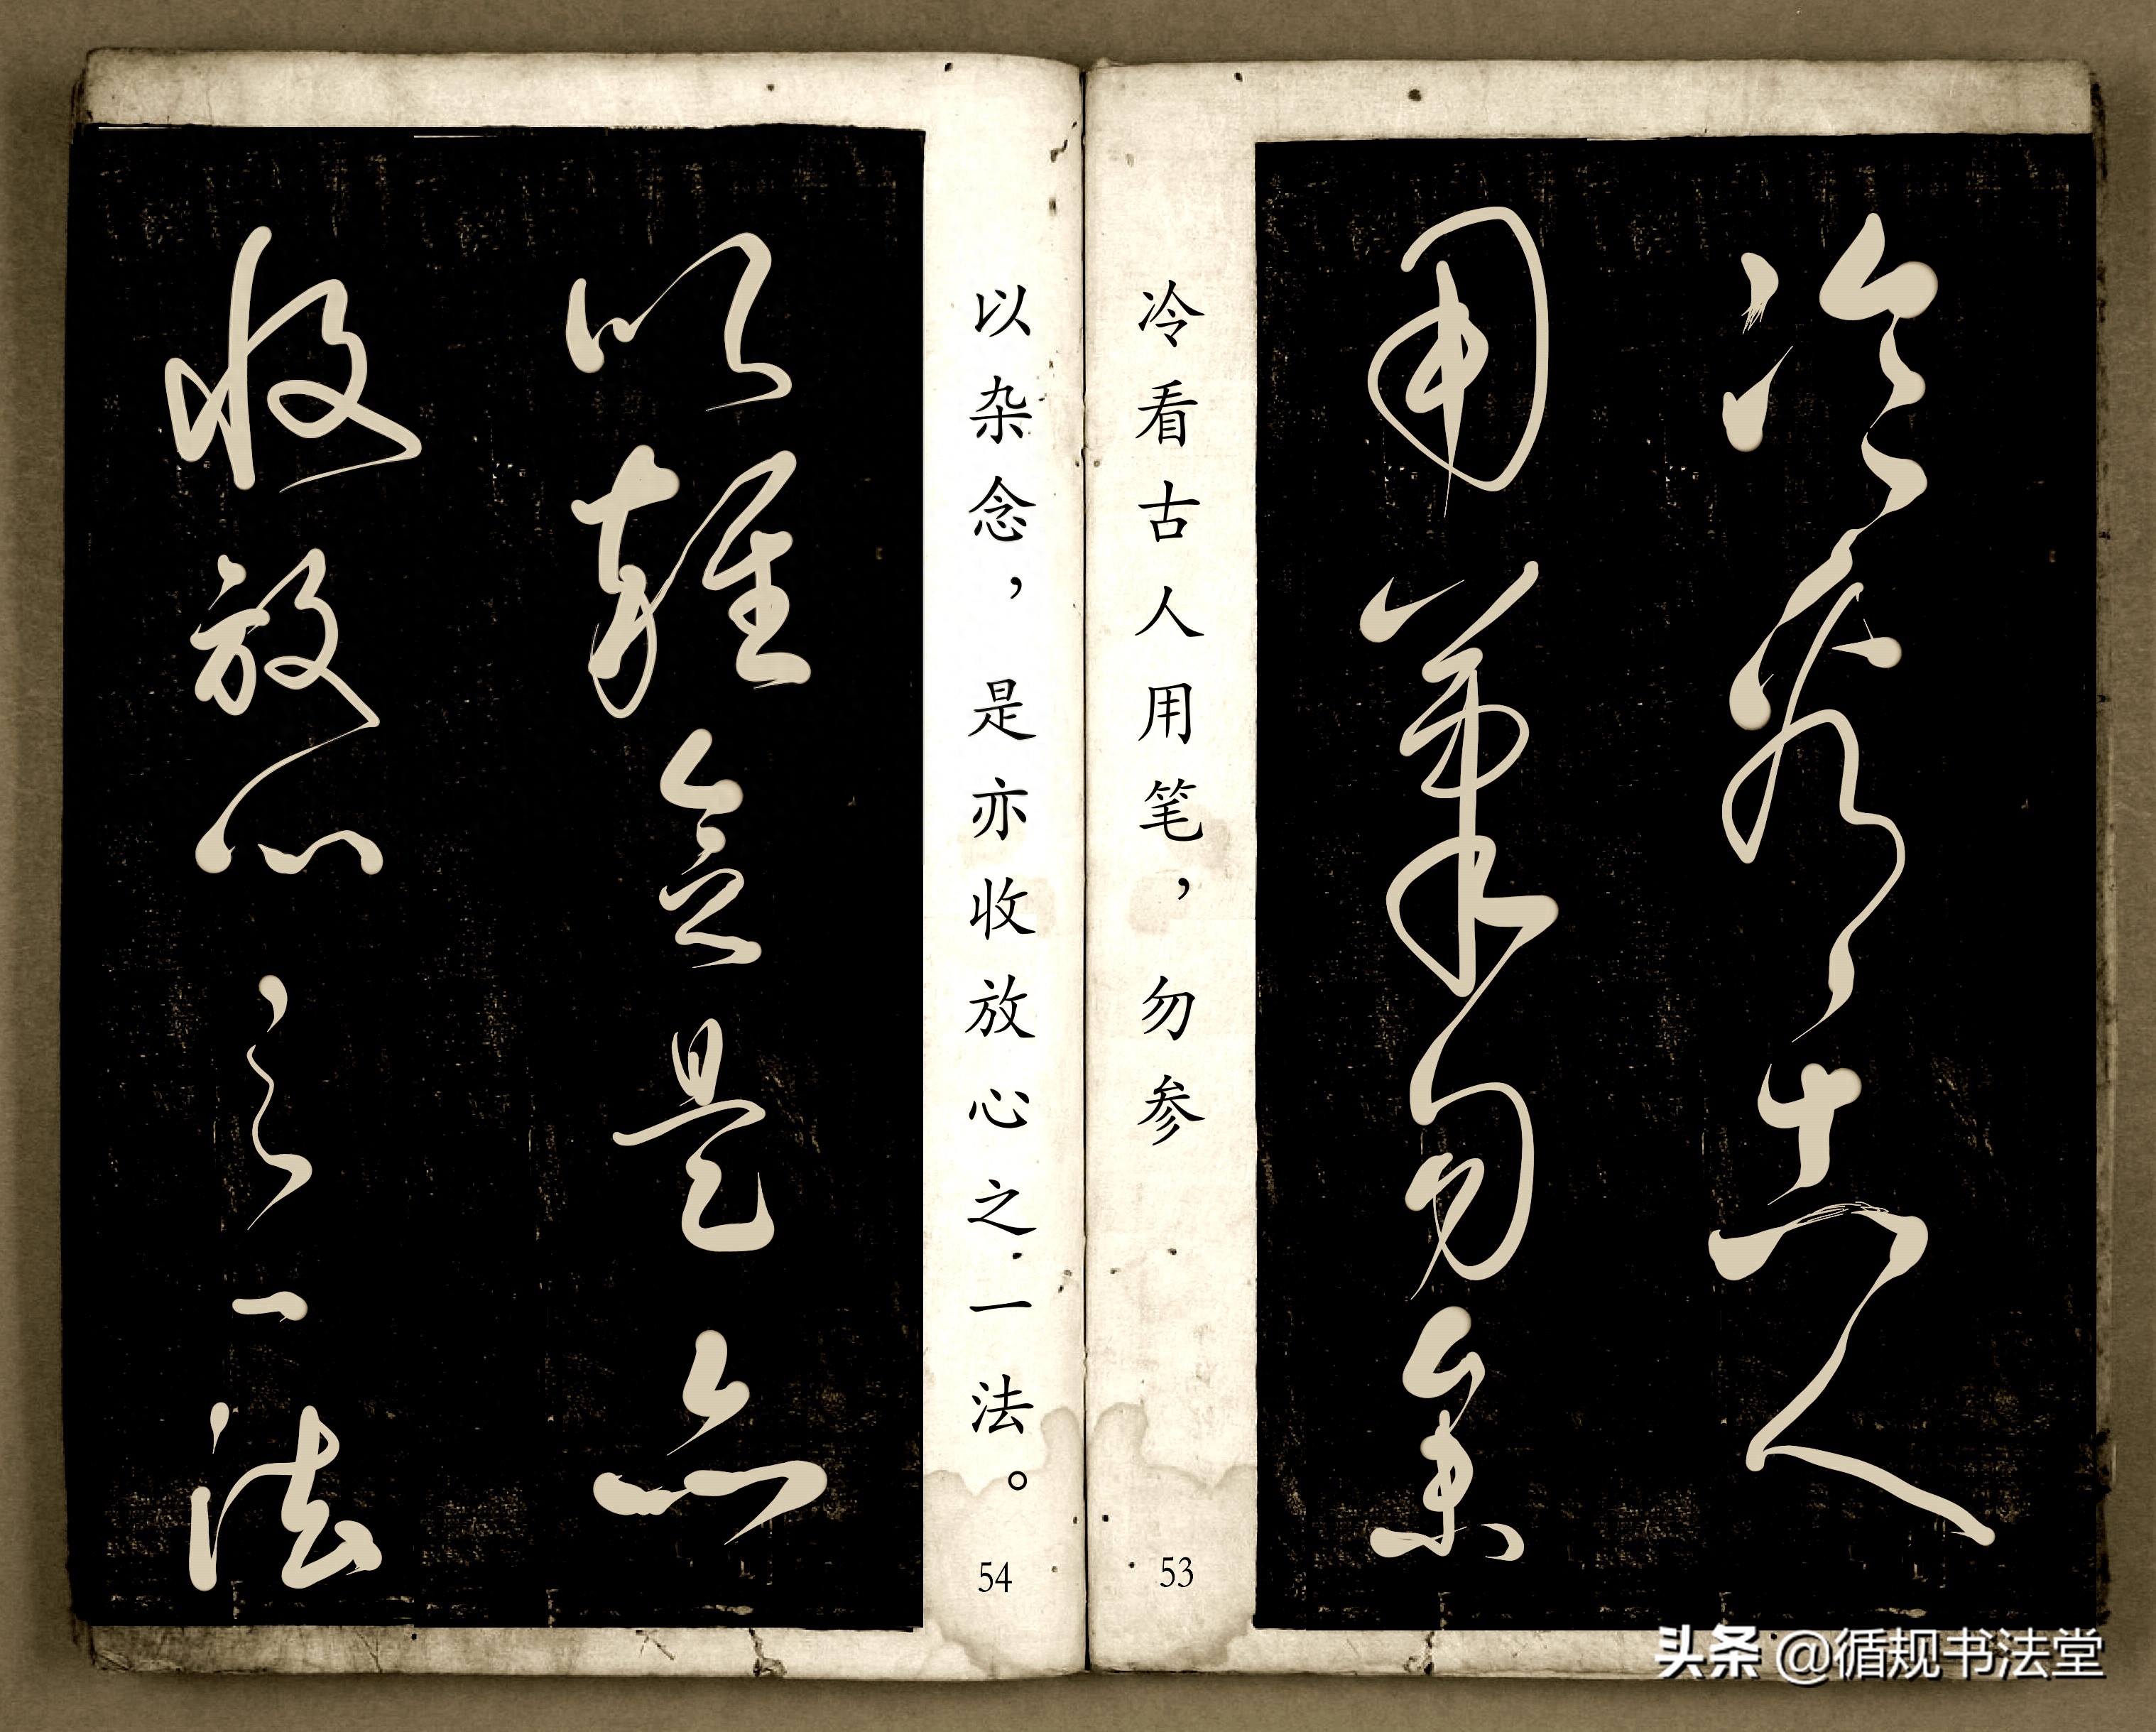 冷看古人
用笔勿参
冷看古人用笔，勿参
53
以杂念，是亦收放心之一法。
54
以雜念是亦
收放心之一法
头条 @循规书法堂